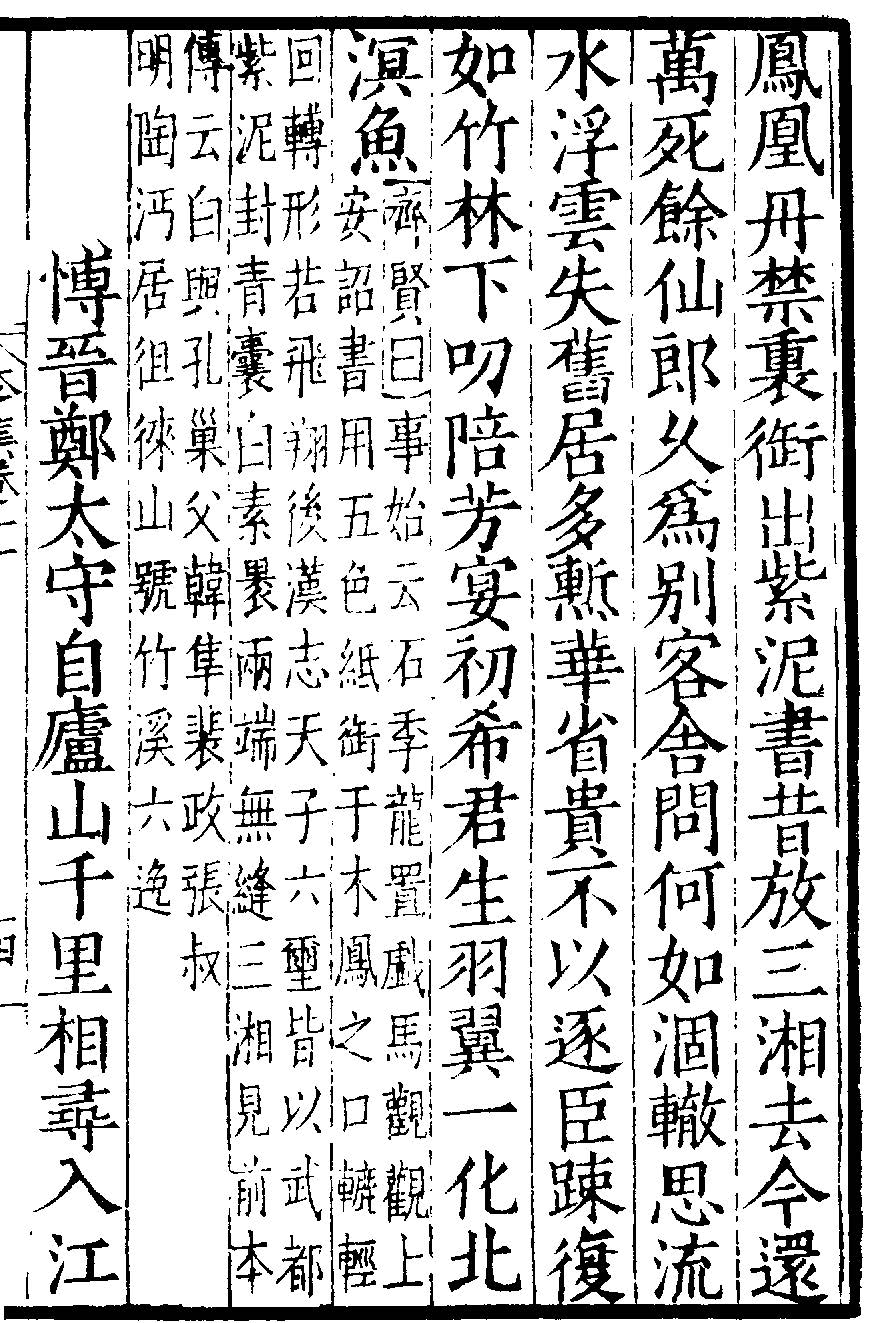 鳳凰丹禁裏銜出紫泥書昔放三湘去今還
萬死餘仙郎久爲別客舍問何如涸轍思流
水浮雲失舊居多慙華省貴不以逐臣踈復
如竹林下叨陪芳宴初希君生羽翼一化北
溟魚
齊賢曰事始云石季龍置戲馬觀觀上
安詔書用五色紙銜于木鳳之口轆輕
回轉形若飛翔後漢志天子六璽皆以武都
紫泥封青囊白素褁兩端無縫三湘見前本
傳云白與孔巢父韓隼裴政張叔
明陶沔居徂徠山號竹溪六逸
愽晉鄭太守自廬山千里相尋入江